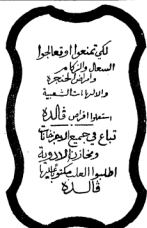 لكي تمنعوا او تعالجوا
السعال والزكام
وامراض الحنجرة
والالتهابات الشعبية
استعملوا اقراص ڤالده
تباع في جميع الاجزاخانات
ومخازن الادوية
اطلبوا العلب مكتوب عليها
ڤالده